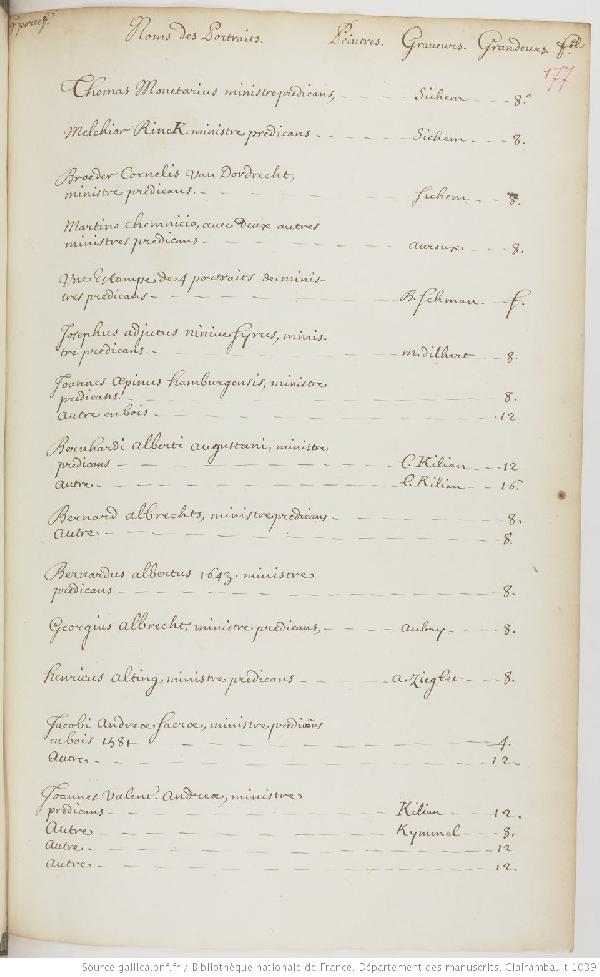 Noms des Portraits. Peintres. Graveurs. Grandeurs. fol.
177
Thomas Monetarius ministre prédicans, Sichem 8.
Melchior Rinck ministre prédicans Sichem 8.
Broeder Cornelis van Dordrecht,
ministre prédicans. Sichem 8.
Martino Chemnicio, avec Deux autres
ministres prédicans 8.
Une Estampe de 4 portraits de minis-
tres prédicans f.
Josephus adjutus ninive Syrus, minis-
tre prédicans m. dilherr 8.
Joannes Æpinus hamburgensis, ministre
prédicans. 8.
Autre en bois 12
Bernhardi Alberti Augustani, ministre
prédicans C. Kilian 12
Autre C. Kilian 16.
Bernard albrechts, ministre prédicans 8.
Autre 8.
Bernardus albertus 1643. ministre
prédicans 8.
Georgius Albrecht, ministre prédicans, Aubry 8.
henricus Alting, ministre prédicans 8.
Jacobi Andreæ Sacræ, ministre prédicans
en bois 1581 4.
Autre 12
Joannes Valent. Andreæ, ministre
prédicans Kilian 12.
Autre Kymmel 8.
Autre 12
Autre 12.
Source gallica.bnf.fr / Bibliothèque nationale de France. Département des manuscrits. Clairambault 1039